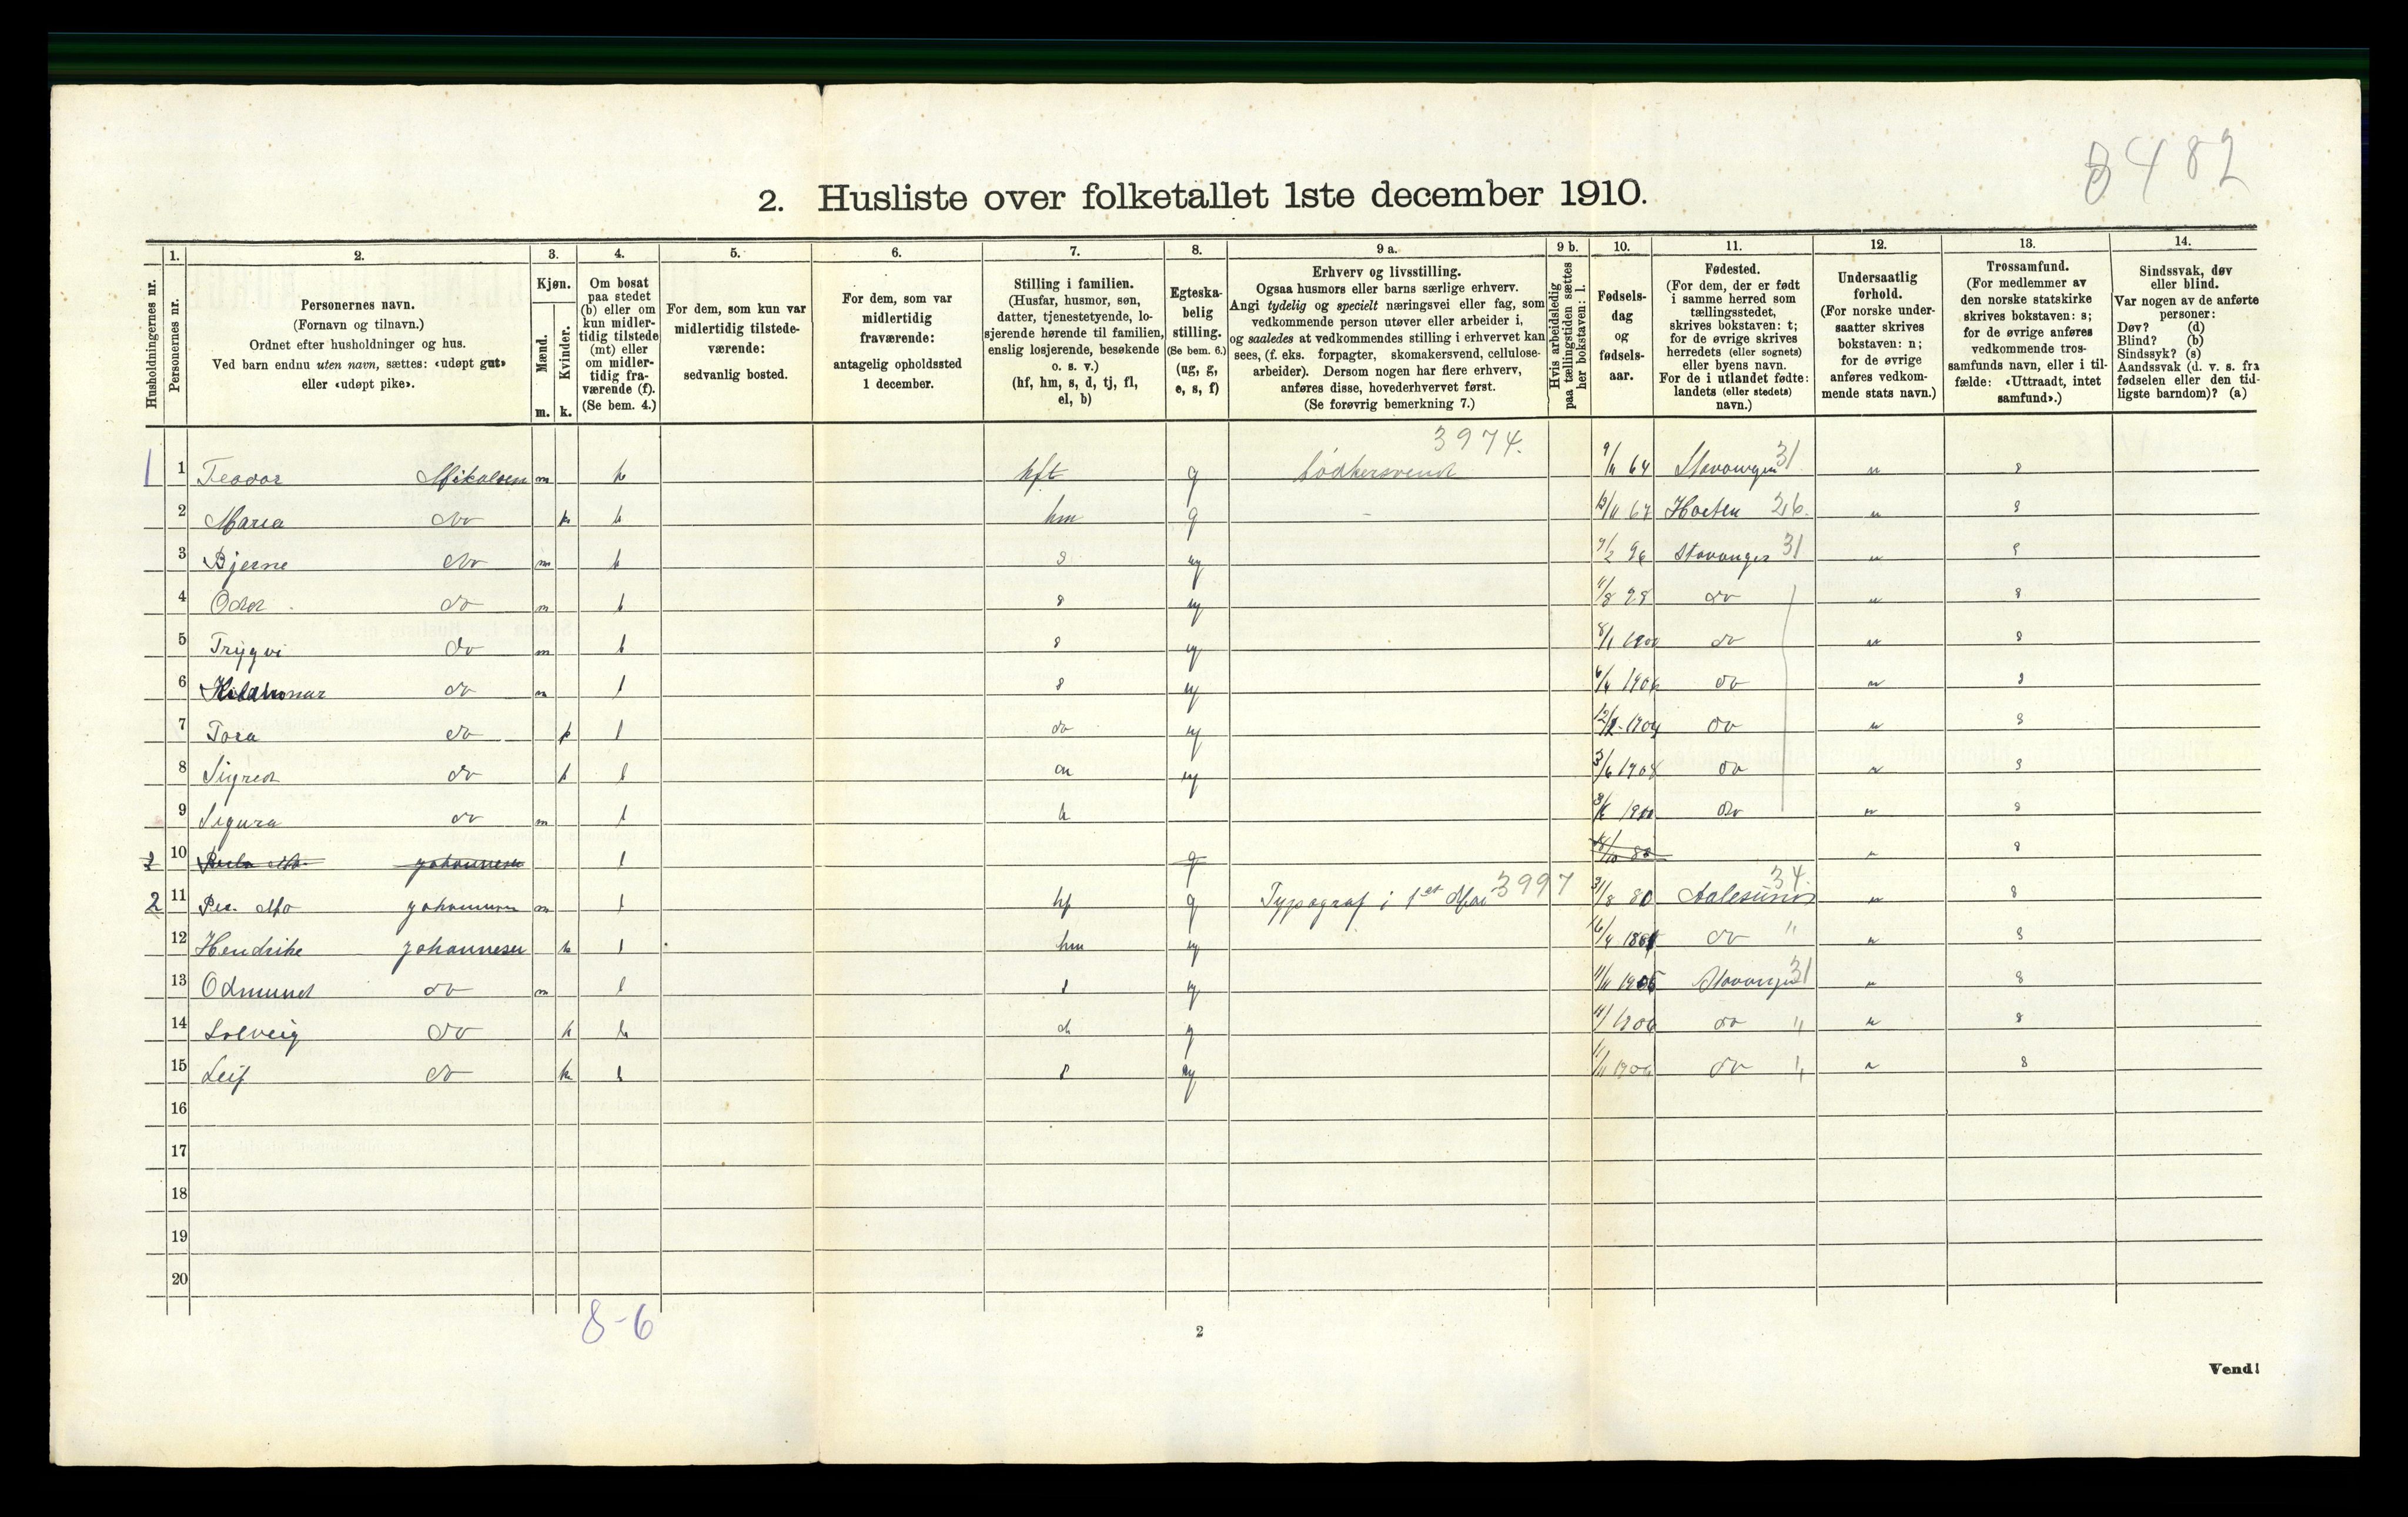 8482
2. Husliste over folketallet 1ste december 1910.
Husholdningernes nr.
1. Personernes nr.
2. Personernes navn.
(Fornavn og tilnavn.)
Ordnet efter husholdninger og hus.
Ved barn endnu uten navn, sættes: «udøpt gut»
eller «udøpt pike».
3. Kjøn.
Mænd. m.
Kvinder. k.
4. Om bosat
paa stedet
(b) eller om
kun midler-
tidig tilstede
(mt) eller
om midler-
tidig fra-
værende (f).
(Se bem. 4.)
5. For dem, som kun var
midlertidig tilstede-
værende:
sedvanlig bosted.
6. For dem, som var
midlertidig
fraværende:
antagelig opholdssted
1 december.
7. Stilling i familien.
(Husfar, husmor, søn,
datter, tjenestetyende, lo-
sjerende hørende til familien,
enslig losjerende, besøkende
o. s. v.)
(hf, hm, s, d, tj, fl,
el, b)
8. Egteska-
belig
stilling.
(Se bem. 6.)
(ug, g,
e, s, f)
9 a. Erhverv og livsstilling.
Ogsaa husmors eller barns særlige erhverv.
Angi tydelig og specielt næringsvei eller fag, som
vedkommende person utøver eller arbeider i,
og saaledes at vedkommendes stilling i erhvervet kan
sees, (f. eks. forpagter, skomakersvend, cellulose-
arbeider). Dersom nogen har flere erhverv,
anføres disse, hovederhvervet først.
(Se forøvrig bemerkning 7.)
9 b. Hvis arbeidsledig
paa tællingstiden sættes
her bokstaven: l.
10. Fødsels-
dag
og
fødsels-
aar.
11. Fødested.
(For dem, der er født
i samme herred som
tællingsstedet,
skrives bokstaven: t;
for de øvrige skrives
herredets (eller sognets)
eller byens navn.
For de i utlandet fødte:
landets (eller stedets)
navn.)
12. Undersaatlig
forhold.
(For norske under-
saatter skrives
bokstaven: n;
for de øvrige
anføres vedkom-
mende stats navn.)
13. Trossamfund.
(For medlemmer av
den norske statskirke
skrives bokstaven: s;
for de øvrige anføres
vedkommende tros-
samfunds navn, eller i til-
fælde: «Uttraadt, intet
samfund».)
14. Sindssvak, døv
eller blind.
Var nogen av de anførte
personer:
Døv? (d)
Blind? (b)
Sindssyk? (s)
Aandssvak (d. v. s. fra
fødselen eller den tid-
ligste barndom)? (a)
3974.
1 1 Teodor Mikalsen m b hft g bødkersvend 9/11 64 Stavanger 31 n s
2 Maria do k b hm g - 67 26. n s
3 Bjerne do m b s ug 9/2 96 Stavanger 31 n s
4 Odd do m b s ug 11/8 98 do n s
5 Trygvi do m b s ug 8/1 1900 do n s
6 do m b s ug do n s
7 Tora do k b do ug do n s
8 Sigred do k b ug do n s
9 Sigurd do m b do n s
2 10 Johannesen b g n s
2 11 Johannesen m b hf g Typograf i 1ste Mai 3997 31/8 80 Aalesund 34. n s
12 Hendrike Johannesen k b hm ug do " n s
13 Odmund do m b s ug Stavanger 31 n s
14 Solveig do k b d g do " n s
15 Leif do k b s ug do " n s
16
17
18
19
20
8-6
2
Vend!